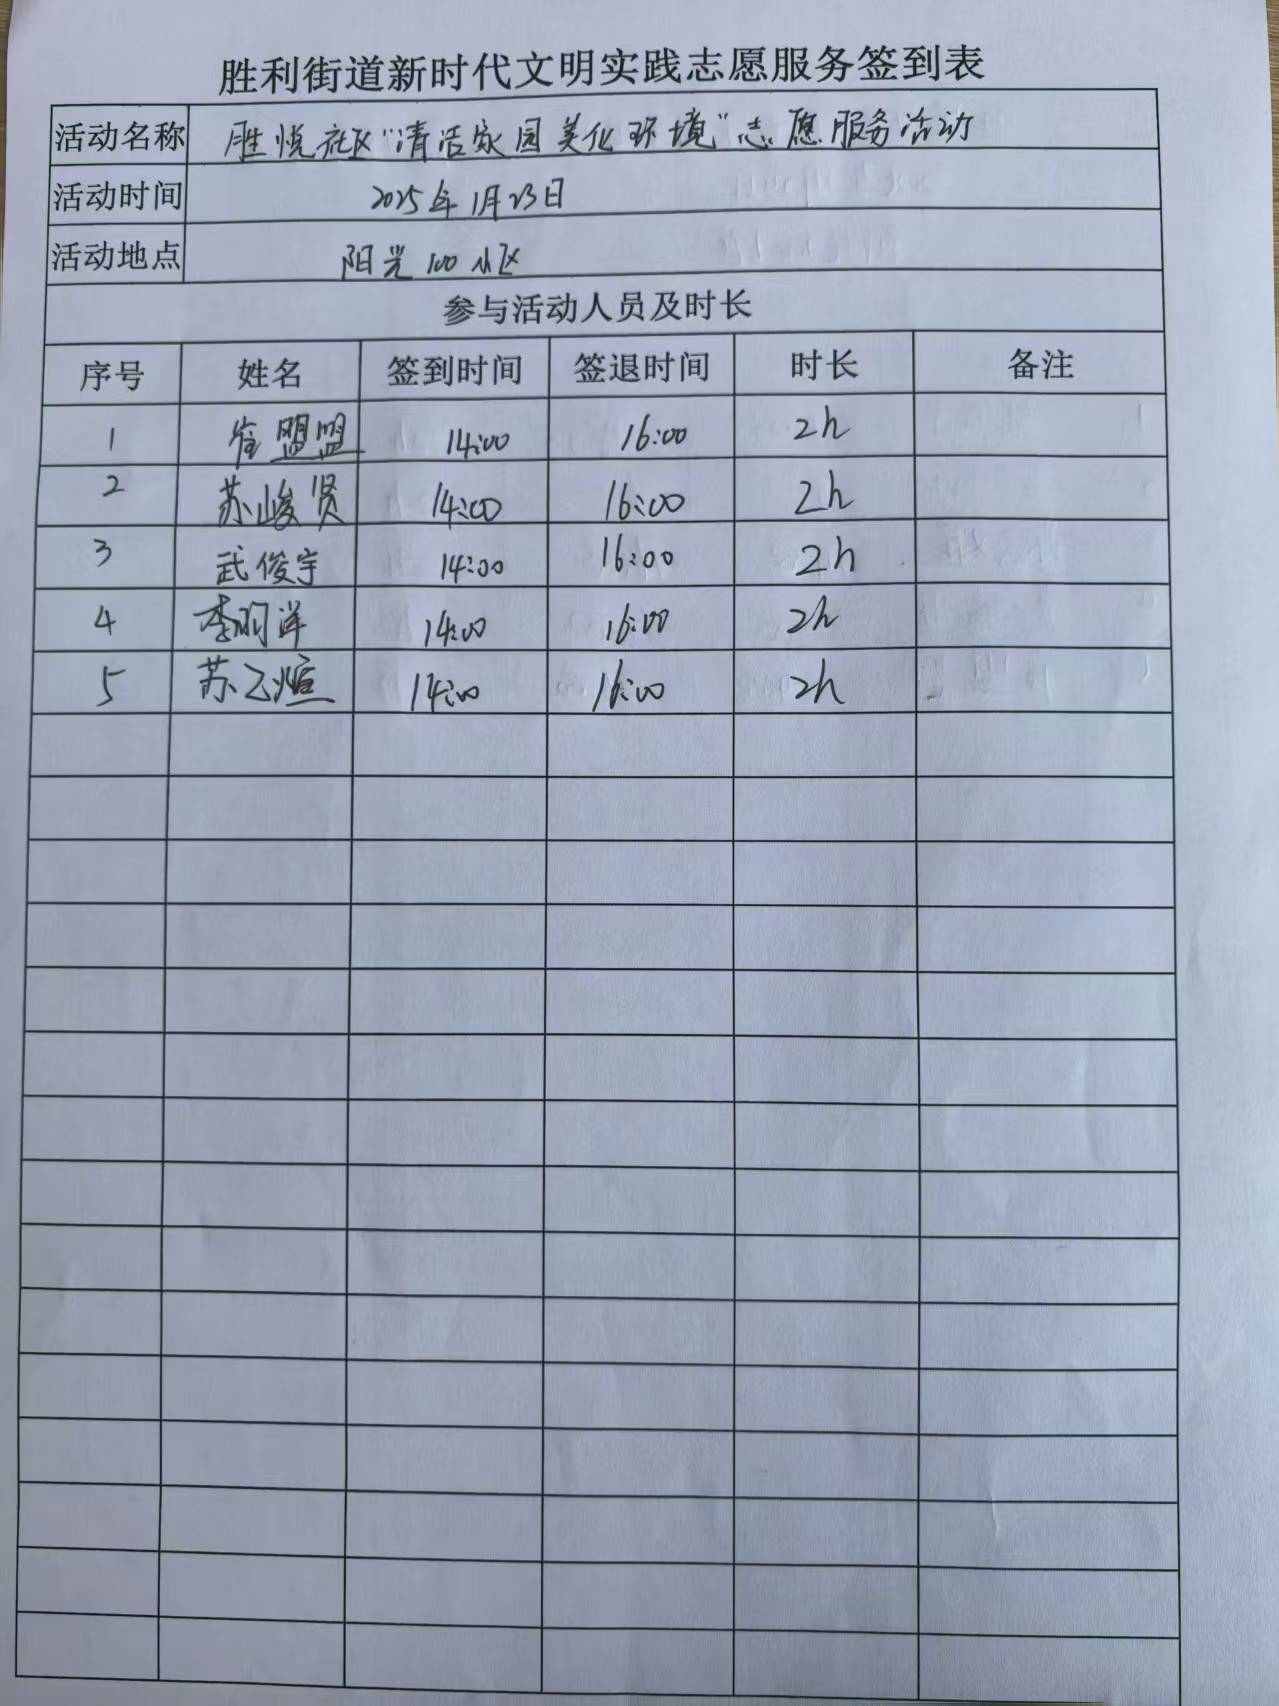 胜利街道新时代文明实践志愿服务签到表
活动名称 胜悦社区“清洁家园美化环境”志愿服务活动
活动时间 2025年1月23日
活动地点 阳光100小区
参与活动人员及时长
序号 姓名 签到时间 签退时间 时长 备注
1 崔盟盟 14:00 16:00 2h
2 苏峻贤 14:00 16:00 2h
3 武俊宇 14:00 16:00 2h
4 李明洋 14:00 16:00 2h
5 苏乙煊 14:00 16:00 2h